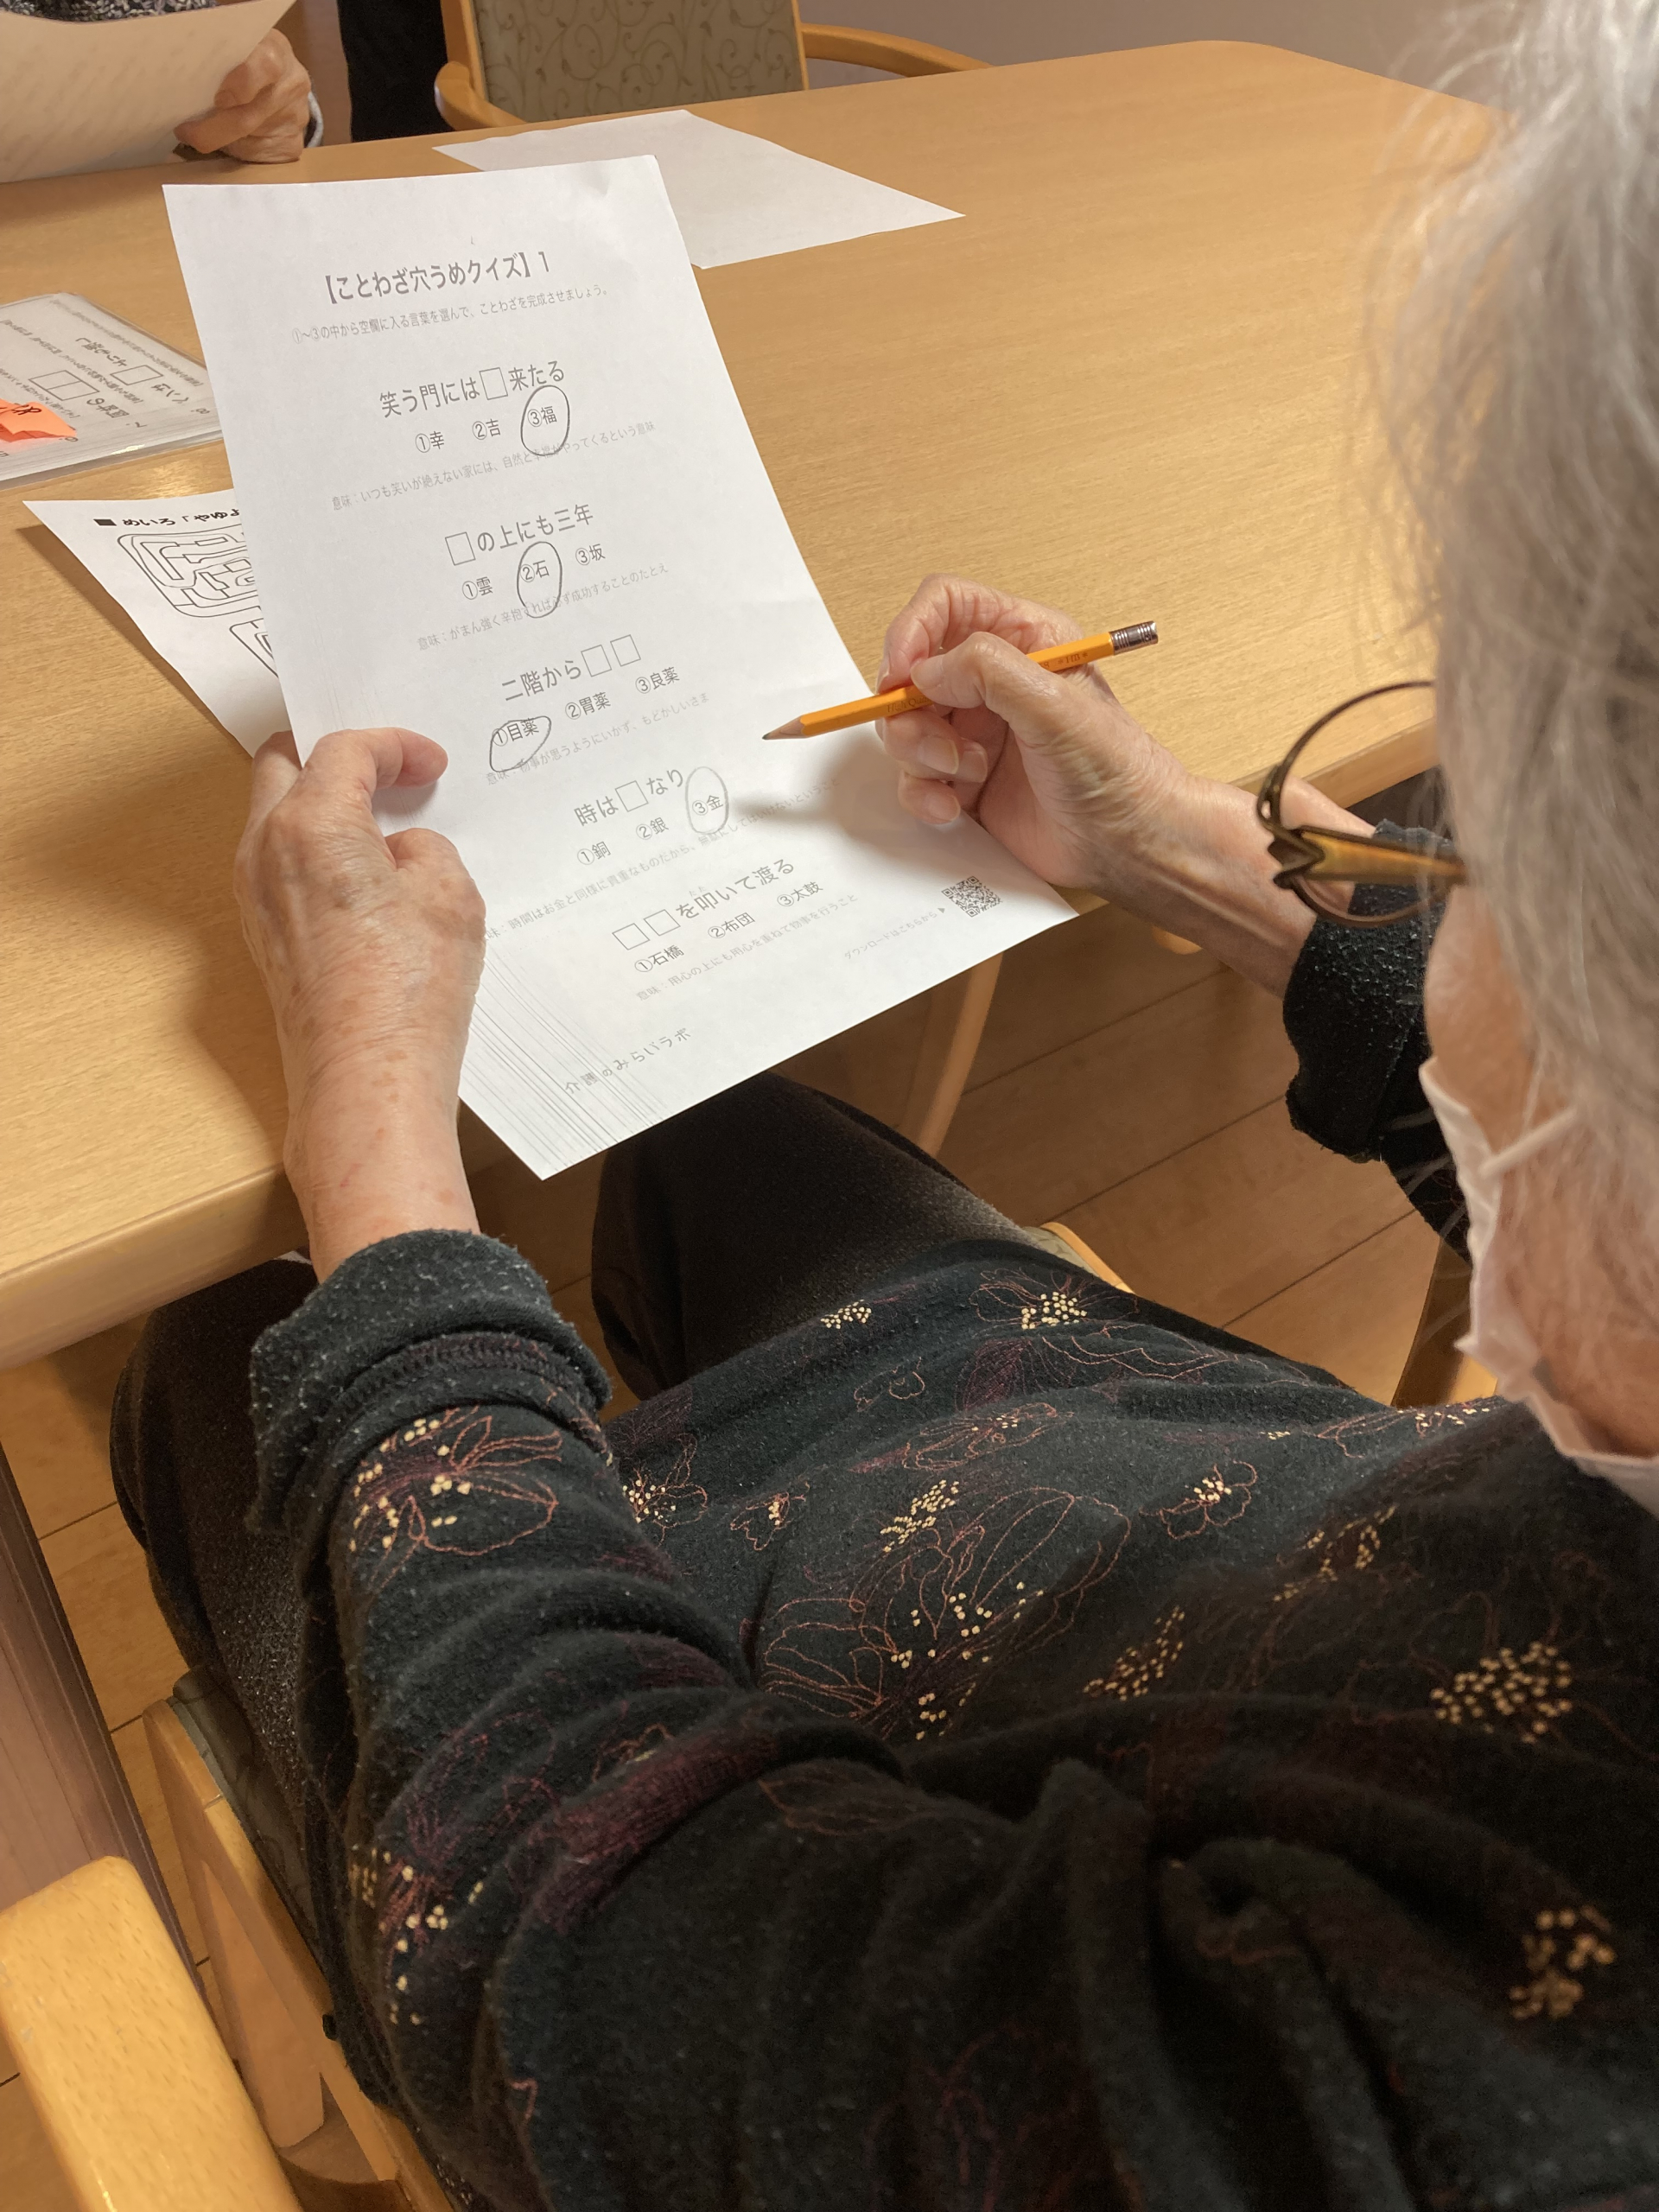 【ことわざ穴うめクイズ】1
①〜③の中から空欄に入る言葉を選んで、ことわざを完成させましょう。
笑う門には□来たる
①幸 ②吉 ③福
意味：いつも笑いが絶えない家には、自然と幸福がやってくるという意味
□の上にも三年
①雲 ②石 ③坂
意味：がまん強く辛抱すれば必ず成功することのたとえ
二階から□□
①目薬 ②胃薬 ③良薬
意味：物事が思うようにいかず、もどかしいさま
時は□なり
①銅 ②銀 ③金
味：時間はお金と同様に貴重なものだから、無駄にしてはいけないという
たた
□□を叩いて渡る
①石橋 ②布団 ③太鼓
意味：用心の上にも用心を重ねて物事を行うこと
ダウンロードはこちらから▶
介護のみらいラボ
■ めいろ「やゆよ